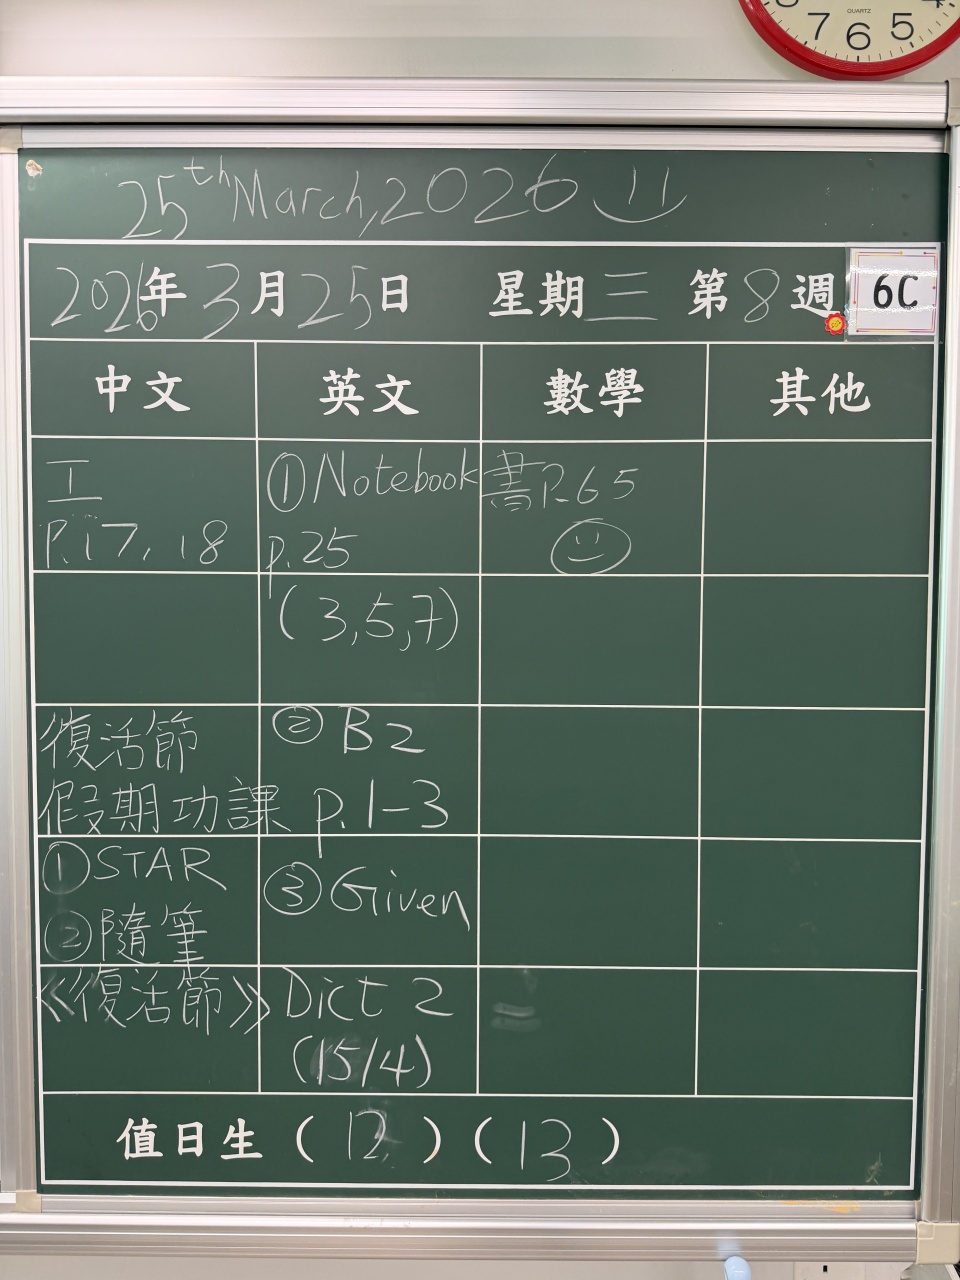 QUARTZ
7 6 5
25th March, 2026
2026年3月25日 星期三 第8週
6C
中文 英文 數學 其他
工
P.17, 18
①Notebook
p.25
(3,5,7)
書P.65
復活節
假期功課
①STAR
②隨筆
《復活節》
② B2
p.1-3
③Given
Dict 2
(15/4)
值日生 ( 12 ) ( 13 )